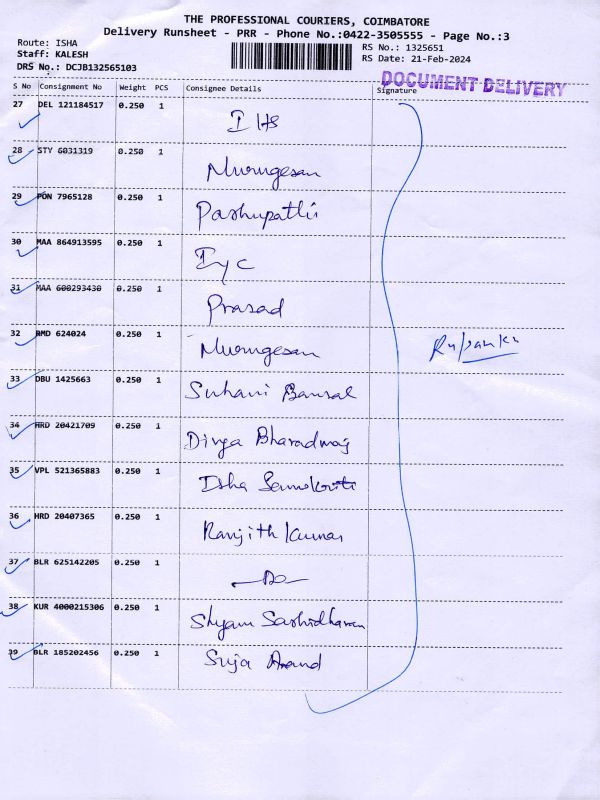 THE PROFESSIONAL COURIERS, COIMBATORE
Delivery Runsheet - PRR - Phone No.:0422-3505555 - Page No.:3
Route: ISHA
Staff: KALESH
DRS No.: DCJB132565103
RS No.: 1325651
RS Date: 21-Feb-2024
DOCUMENT DELIVERY
S No Consignment No Weight PCS Consignee Details Signature
27 DEL 121184517 0.250 1 IHS
28 STY 6031319 0.250 1 Murugesan
29 PON 7965128 0.250 1 Pashupathi
30 MAA 864913595 0.250 1 Iyc
31 MAA 600293430 0.250 1 Prasad
32 RMD 624024 0.250 1 Murugesan
33 DBU 1425663 0.250 1 Suhani Bansal
34 HRD 20421709 0.250 1 Divya Bharadwaj
35 VPL 521365883 0.250 1 Isha Samskriti
36 HRD 20407365 0.250 1 Ranjith Kumar
37 BLR 625142205 0.250 1 —Do—
38 KUR 4000215306 0.250 1 Shyam Sashidharan
39 BLR 185202456 0.250 1 Suja Anand